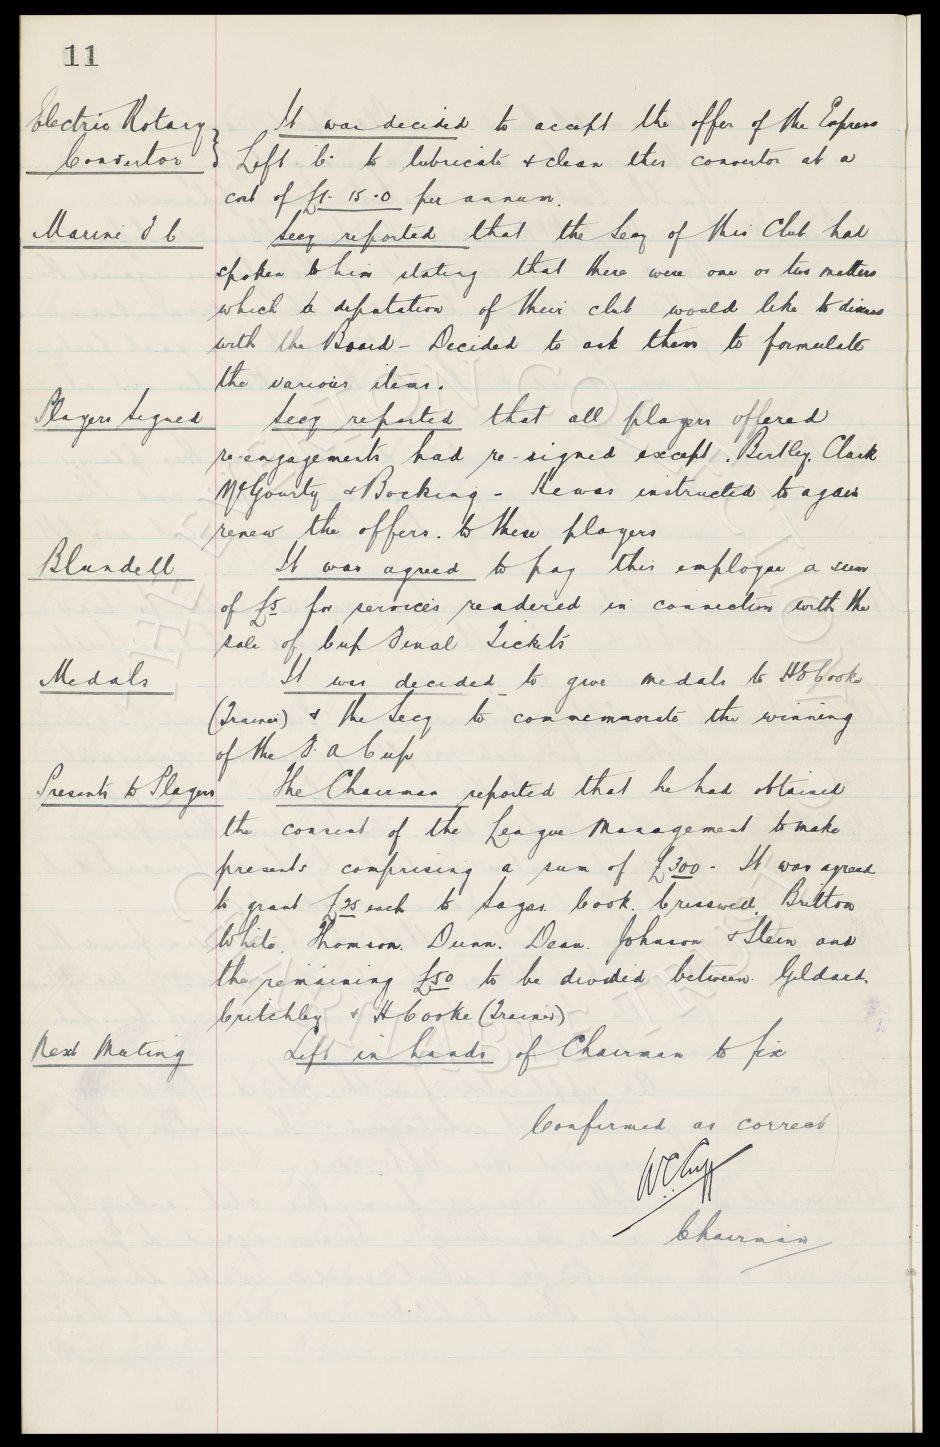 11
Electric Rotary Convertor } It was decided to accept the offer of the Express
Lift Co. to lubricate & clean this convertor at a
cost of £1-15-0 per annum.
Marine F C Secy reported that the Secy of this Club had
spoken to him stating that there were one or two matters
which a deputation of their club would like to discuss
with the Board - Decided to ask them to formulate
the various items.
Players Signed Secy reported that all players offered
re-engagements had re-signed except. Bentley. Clark
McGourty & Bocking - He was instructed to again
renew the offers. to these players
Blundell It was agreed to pay this employee a sum
of £5 for services rendered in connection with the
sale of Cup Final Tickets
Medals It was decided to give medals to H E Cooke
(Trainer) & the Secy to commemorate the winning
of the F. A Cup
Presents to Players The Chairman reported that he had obtained
the consent of the League Management to make
presents comprising a sum of £300 - It was agreed
to grant £25 each to Sagar. Cook. Cresswell. Britton
White. Thomson. Dunn. Dean. Johnson & Stein and
the remaining £50 to be divided between Geldard.
Critchley & H Cooke (Trainer)
Next Meeting Left in hands of Chairman to fix
Confirmed as correct
W.C. Cuff
Chairman